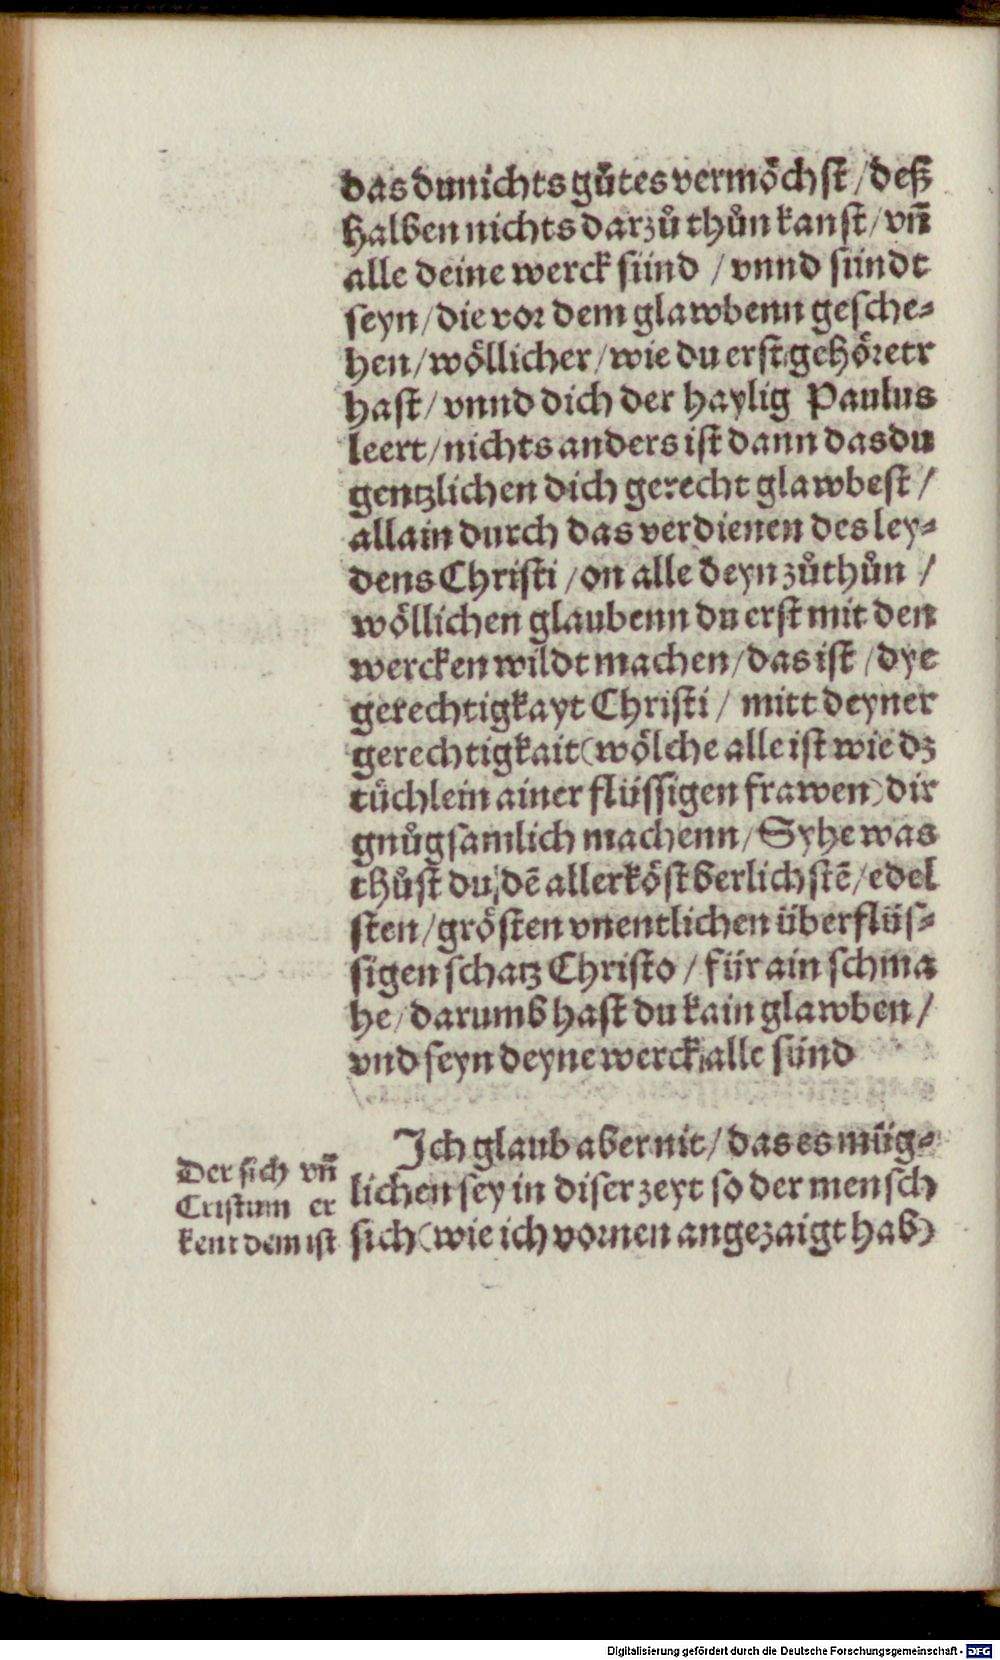 das du nichts gůtes vermöchst / deß
halben nichts darzů thůn kanst / vñ
alle deine werck sünd / vnnd sündt
seyn / die vor dem glawbenn gesche-
hen / wöllicher / wie du erst gehöretr
hast / vnnd dich der haylig Paulus
leert / nichts anders ist dann das du
gentzlichen dich gerecht glawbest /
allain durch das verdienen des ley-
dens Christi / on alle deyn zůthůn /
wöllichen glaubenn du erst mit den
wercken wildt machen / das ist / dye
gerechtigkayt Christi / mitt deyner
gerechtigkait (wölche alle ist wie dz
tüchlein ainer flüssigen frawen) dir
gnůgsamlich machenn / Syhe was
thůst du / dē allerköstberlichstē / edel
sten / grösten vnentlichen überflüs-
sigen schatz Christo / für ain schma
he / darumb hast du kain glawben /
vnd seyn deyne werck alle sünd
Ich glaub aber nit / das es müg-
lichen sey in diser zeyt so der mensch
sich (wie ich vornen angezaigt hab)
Der sich vñ
Cristum er
kent dem ist
Digitalisierung gefördert durch die Deutsche Forschungsgemeinschaft - DFG